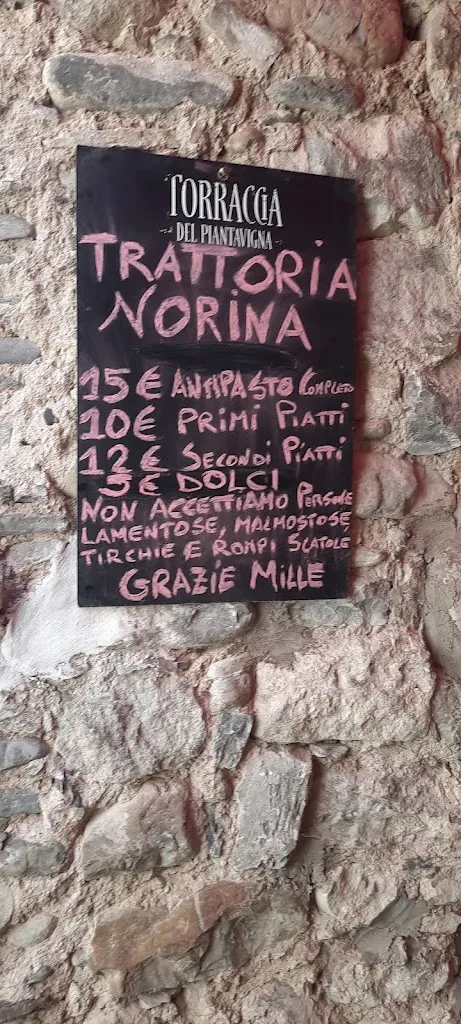 TORRACCIA
DEL PIANTAVIGNA
TRATTORIA
NORINA
15€ ANTIPASTO COMPLETO
10€ PRIMI PIATTI
12€ SECONDI PIATTI
5€ DOLCI
NON ACCETTIAMO PERSONE
LAMENTOSE, MALMOSTOSE,
TIRCHIE E ROMPI SCATOLE
GRAZIE MILLE